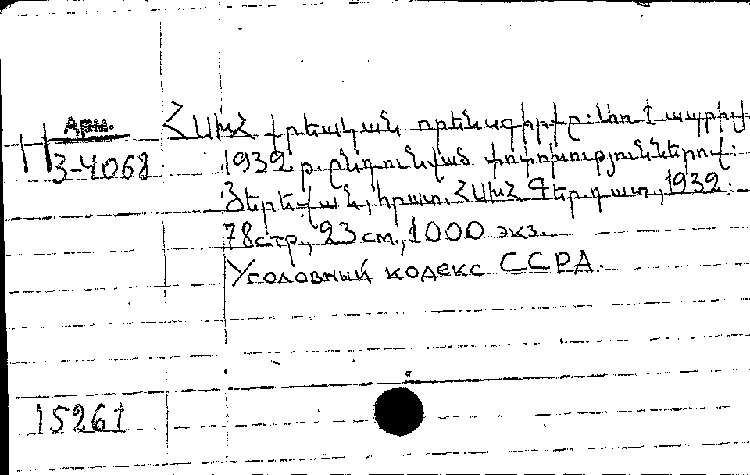 Арм.
3-4068
ՀՍԽՀ քրեական որենսգիրքը: Առ 1 ապրիլի
1932 թ. ընդունված փոփոխություններով:
Յերեվան, հրատ. ՀՍԽՀ Գեր. դատ, 1932.
78 стр., 23 см., 1000 экз.
Уголовный кодекс ССРА.
15261